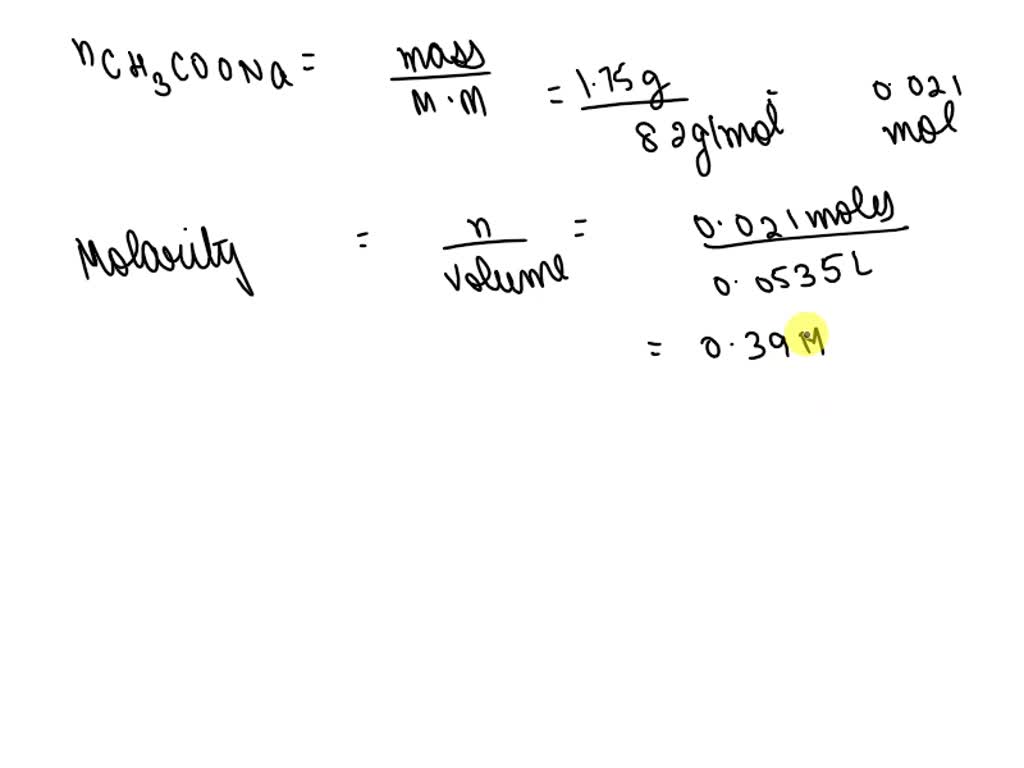 nCH3COONa = mass / M·M = 1.75g / 82g/mol = 0.021 mol
Molarity = n / volume = 0.021 moles / 0.0535L
= 0.39 M